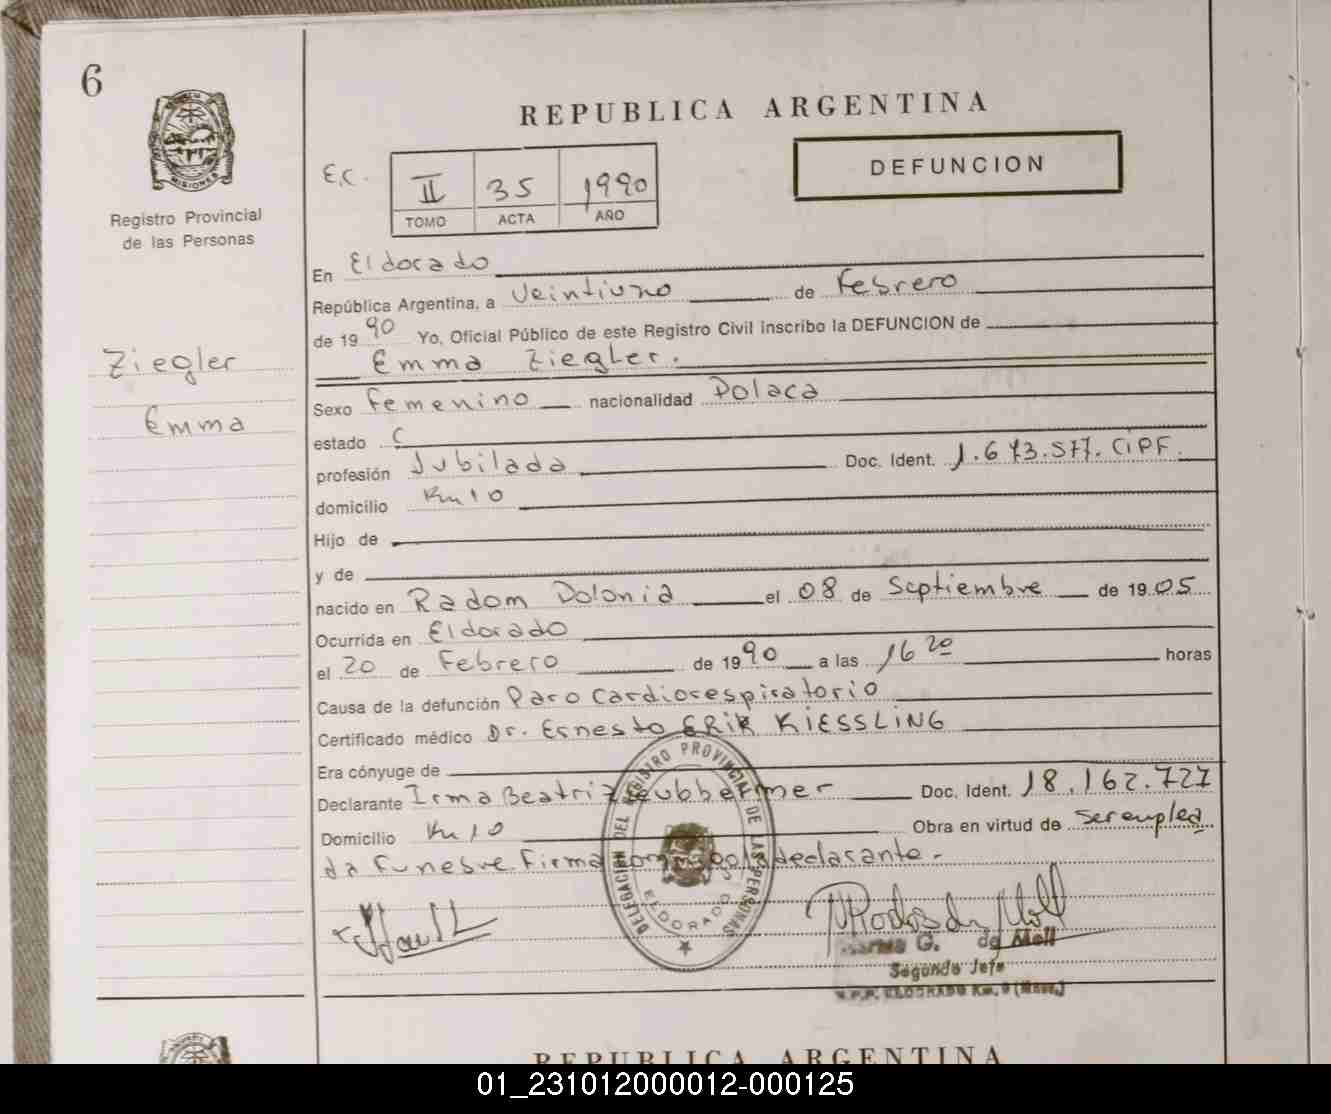 6
REPUBLICA ARGENTINA
DEFUNCION
E.C.
II 35 1990
TOMO ACTA AÑO
MISIONES
Registro Provincial
de las Personas
Ziegler
Emma
En Eldorado
República Argentina, a Veintiuno de Febrero
de 1990 Yo, Oficial Público de este Registro Civil inscribo la DEFUNCION de
Emma Ziegler.
Sexo Femenino nacionalidad Polaca
estado C
profesión Jubilada Doc. Ident. 1.673.577. CIPF.
domicilio Km 10
Hijo de
y de
nacido en Radom Polonia el 08 de Septiembre de 1905
Ocurrida en Eldorado
el 20 de Febrero de 1990 a las 16 20 horas
Causa de la defunción Paro Cardiorespiratorio
Certificado médico Dr. Ernesto ERIK KIESSLING
Era cónyuge de
Declarante Irma Beatriz Doc. Ident. 18.162.727
Domicilio Km 10 Obra en virtud de ser emplea
da Funebre. Firma declarante.
DELEGACION DEL REGISTRO PROVINCIAL DE LAS PERSONAS
ELDORADO
G. de Moll
Segundo Jefe
R.P.P. ELDORADO Km. 9 (Mnes.)
REPUBLICA ARGENTINA
01_231012000012-000125